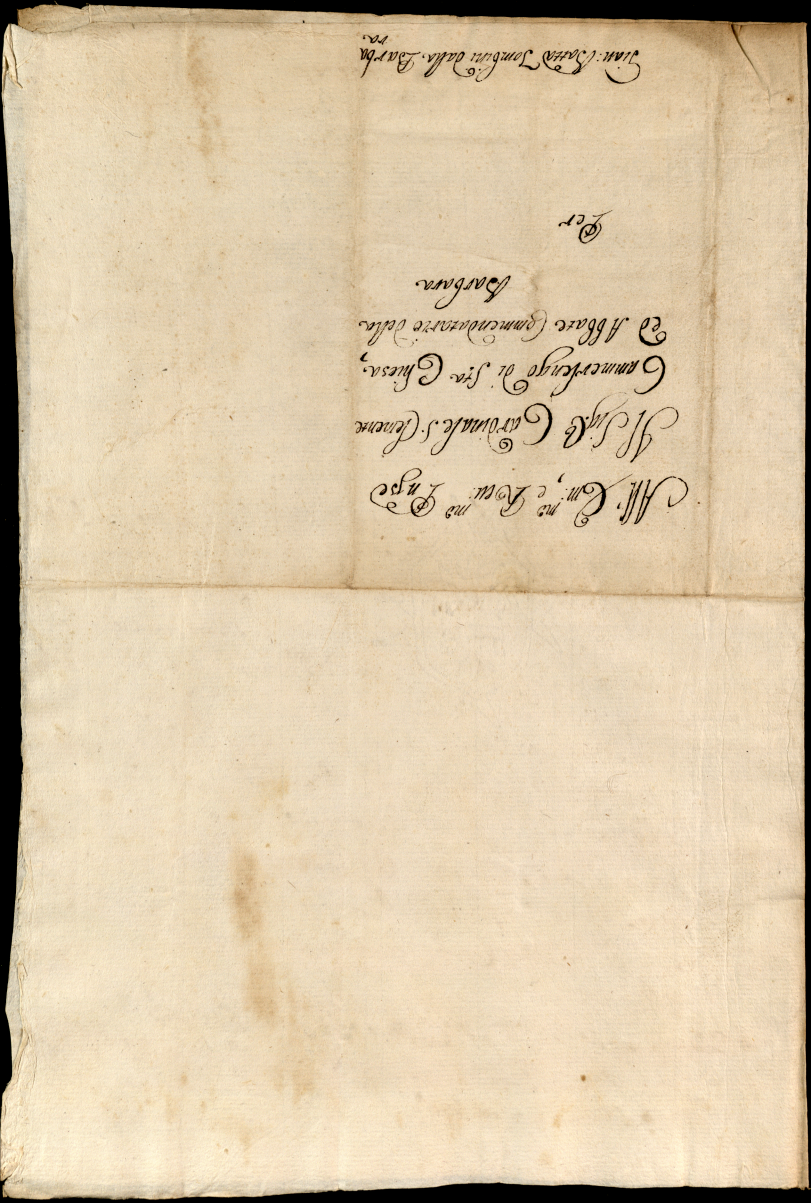 All' Em:mo, e Rev:mo Pnpe
Il Sig.r Cardinale S. Clemente
Cammerlengo di Sta Chiesa,
ed Abbate Commendatario della
Barbara
Per
Gian: Batta Tombini dalla Barba
ra